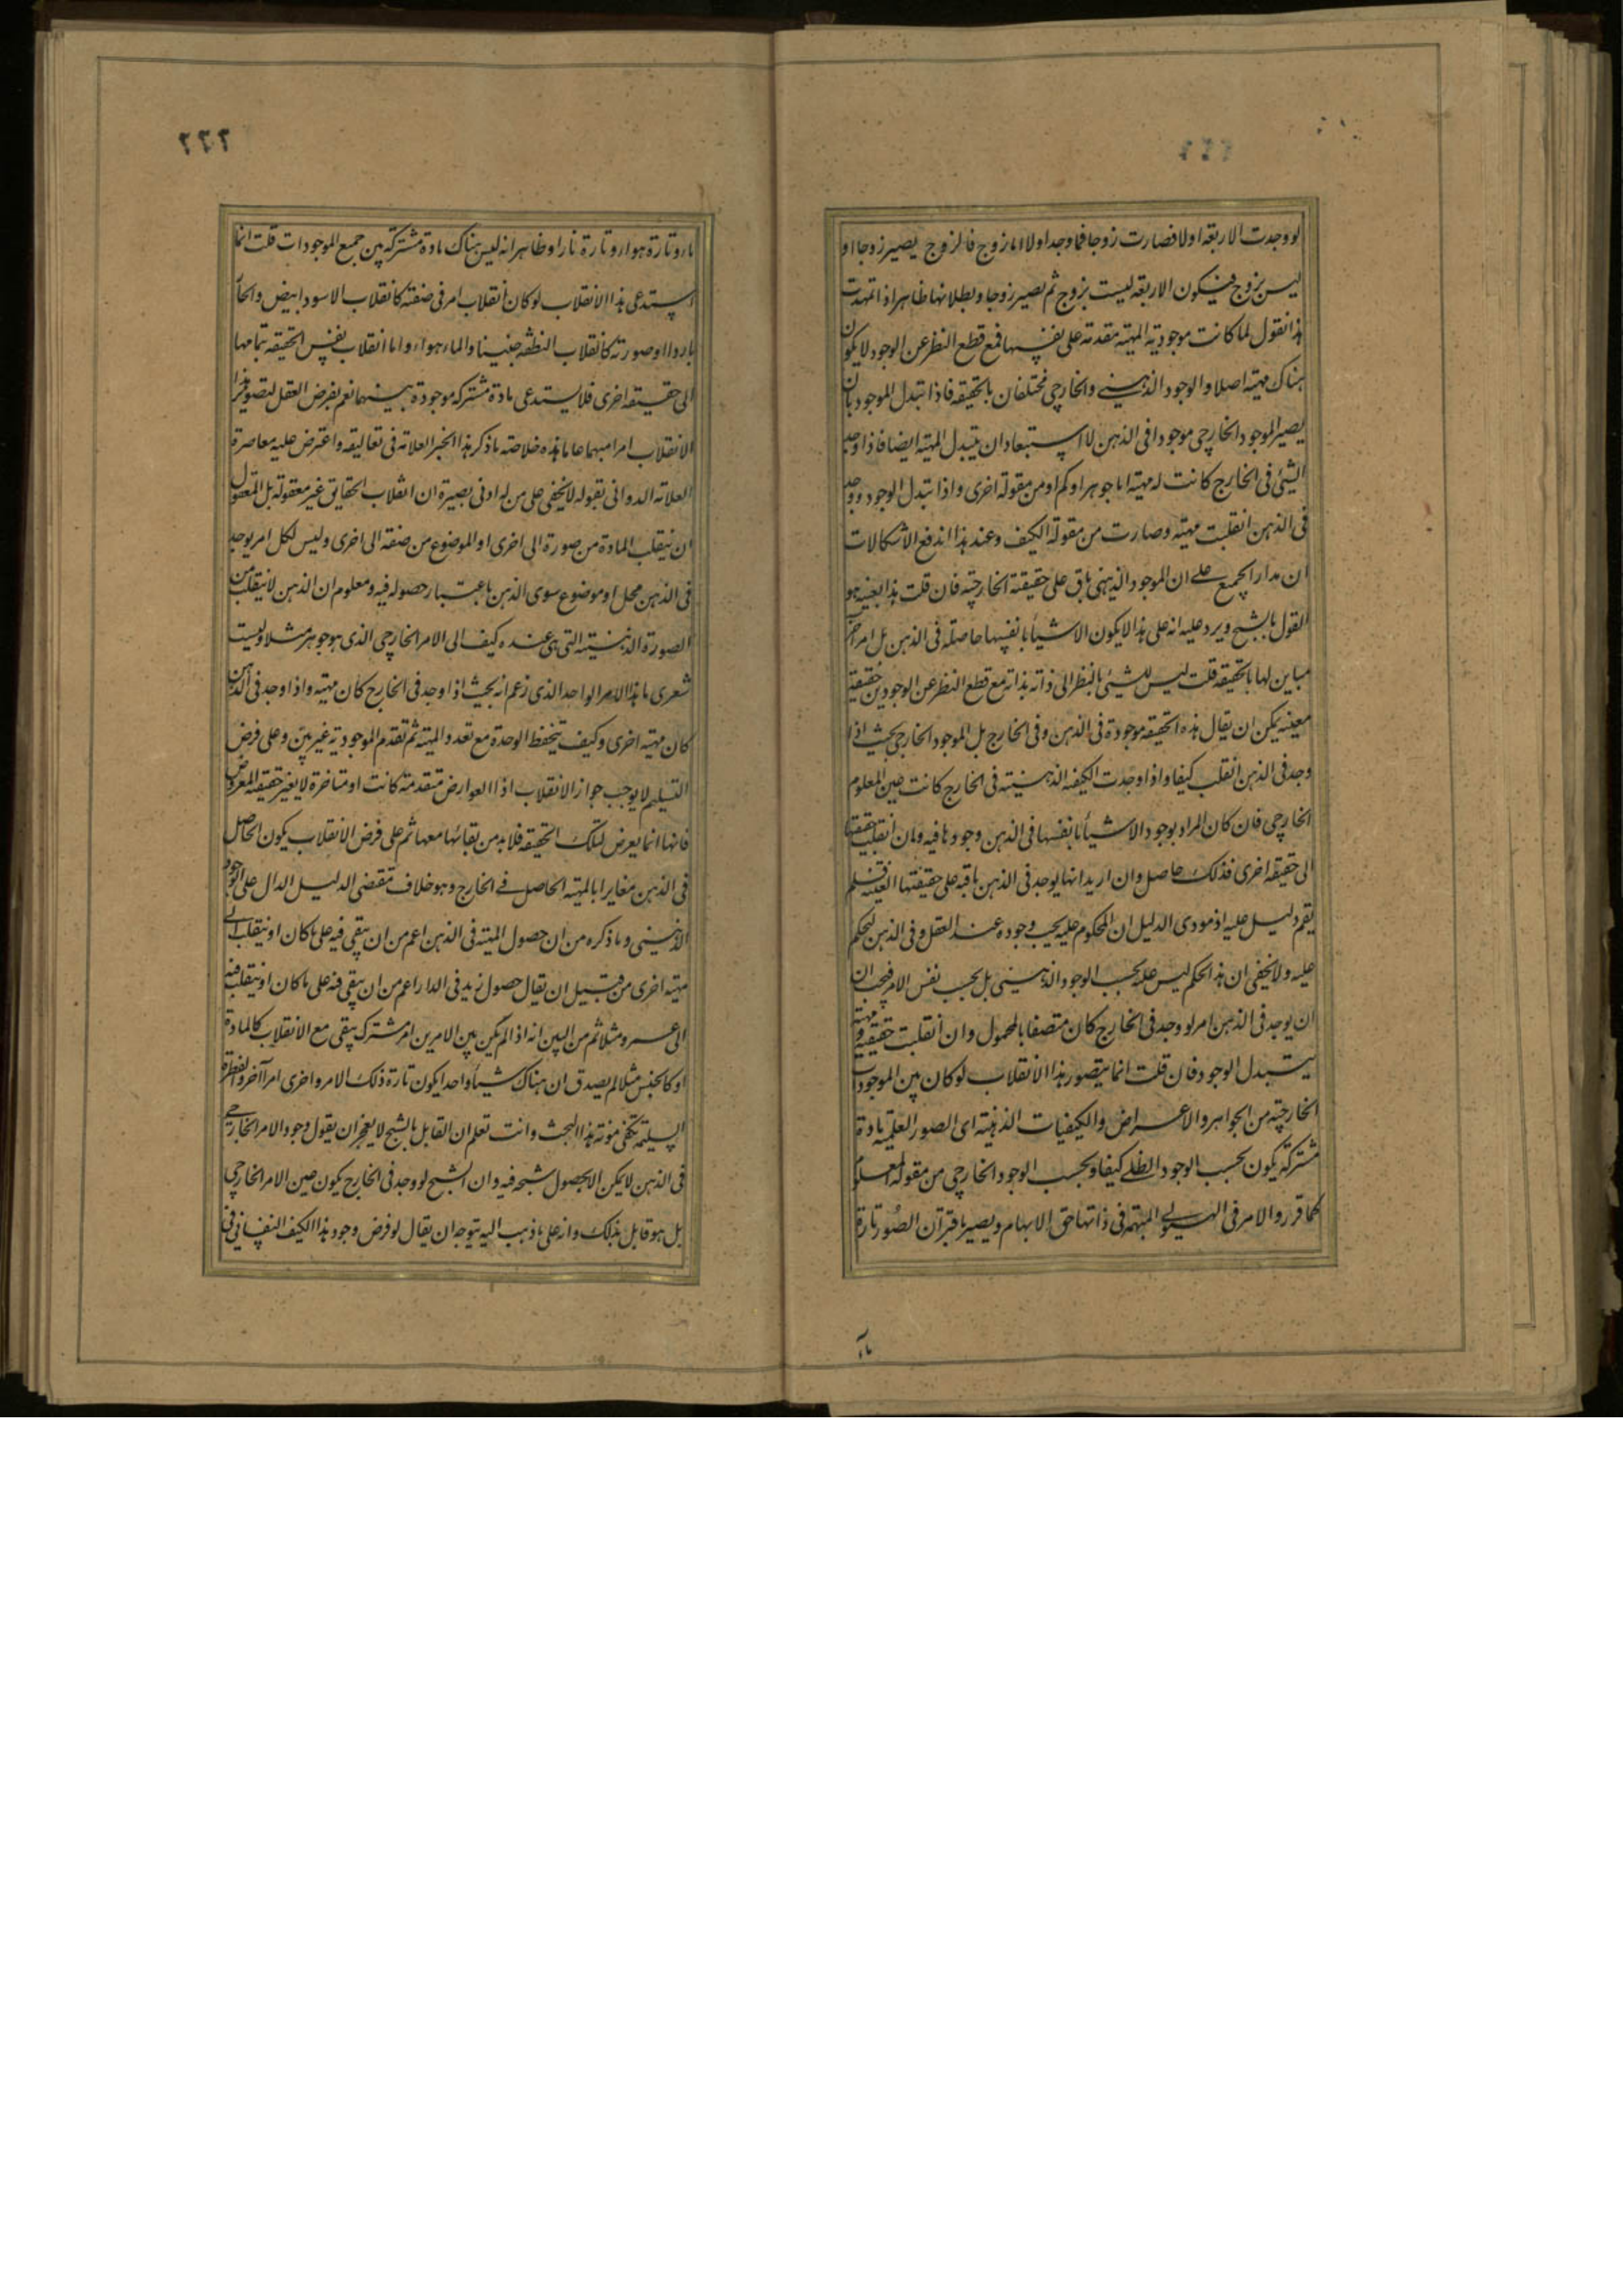 لو وجدت الاربعه اولا فصارت زوجا فما وجد اولا اما زوج فالزوج يصير زوجا او
ليس بزوج فيكون الاربعه ليست بزوج ثم يصير زوجا وبطلانها ظاهر اذا تمهدت
هذا نقول لما كانت موجودية المهية مقدمة على نفسها فمع قطع النظر عن الوجود لا يكون
هناك مهية اصلا والوجود الذهني والخارجي مختلفان بالحقيقه فاذا تبدل الموجود بان
يصير الموجود الخارجي موجودا فى الذهن لا استبعاد ان يتبدل المهية ايضا فاذا وجد
الشئ فى الخارج كانت له مهية اما جوهر او كم او من مقولة اخرى واذا تبدل الوجود ووجد
فى الذهن انقلبت مهيته وصارت من مقولة الكيف وعند هذا اندفع الاشكالات
ان مدار الجميع على ان الموجود الذهنى باق على حقيقته الخارجيه فان قلت هذا بعينه هو
القول بالشبح ويرد عليه انه على هذا لا يكون الاشيأ بانفسها حاصلة فى الذهن بل امر اخر
مباين لها بالحقيقه قلت ليس للشئ بالنظر الى ذاته بذاته مع قطع النظر عن الوجودين حقيقة
معينه يمكن ان يقال هذه الحقيقه موجودة فى الذهن وفى الخارج بل الموجود الخارجى بحيث اذا
وجد فى الذهن انقلب كيفا واذا وجدت الكيفيه الذهنيته فى الخارج كانت عين المعلوم
الخارجى فان كان المراد بوجود الاشيأ بانفسها فى الذهن وجودها فيه وان انقلبت حقيقتها
الى حقيقه اخرى فذلك حاصل وان اريد انها يوجد فى الذهن باقيه على حقيقتها العينيه فلم
يقم دليل عليه اذ مودى الدليل ان المحكوم عليه يجب وجوده عند العقل وفى الذهن ليحكم
عليه ولا يخفى ان هذا الحكم ليس عليه بحسب الوجود الذهنى بل بحسب نفس الامر فيجب ان
ان يوجد فى الذهن امر لو وجد فى الخارج كان متصفا بالمحمول وان انقلبت حقيقته ومهيته
يتبدل الوجود فان قلت انما يتصور هذا الانقلاب لو كان بين الموجودات
الخارجيه من الجواهر والاعراض والكيفيات الذهنيته اى الصور العلميه مادة
مشتركة يكون بحسب الوجود الظلى كيفا وبحسب الوجود الخارجى من مقولة المعلوم
كما قرروا الامر فى الهيولى المبهمه فى ذاتها حق الابهام ويصير باقتران الصور تارة
مآء
٢٢٢
مآء وتارة هوآء وتارة نارا وظاهر انه ليس هناك مادة مشتركة بين جميع الموجودات قلت انما
استدعى هذا الانقلاب لو كان انقلاب امر فى صفته كانقلاب الاسود ابيض والحار
باردا او صورته كانقلاب النطفه جنينا والماء هوآء واما انقلاب نفس الحقيقه بتمامها
الى حقيقه اخرى فلا يستدعى مادة مشتركه موجودة بينهما نعم بفرض العقل لتصوير هذا
الانقلاب امرا مبهما عاما هذه خلاصة ما ذكر هذا الحبر العلامه فى تعاليقه واعترض عليه معاصره
العلامه الدوانى بقوله لا يخفى على من له ادنى بصيرة ان انقلاب الحقايق غير معقوله بل المعقول
ان ينقلب المادة من صورة الى اخرى او الموضوع من صفه الى اخرى وليس لكل امر يوجد
فى الذهن محل او موضوع سوى الذهن باعتبار حصوله فيه ومعلوم ان الذهن لا ينقلب من
الصورة الذهنيته التى هى عنده كيف الى الامر الخارجى الذى هو جوهر مثلا وليت
شعرى ما هذا الامر الواحد الذى زعم انه بحيث اذا وجد فى الخارج كان مهية واذا وجد فى الذهن
كان مهية اخرى وكيف يتحفظ الوحدة مع تعدد المهية ثم تقدم الموجودية غير بين وعلى فرض
التسليم لا يوجب جواز الانقلاب اذ العوارض متقدمة كانت او متاخرة لا يغير حقيقة المعروض
فانها انما يعرض لتلك الحقيقه فلابد من بقائها معها ثم على فرض الانقلاب يكون الحاصل
فى الذهن مغايرا بالمهية الحاصل فى الخارج وهو خلاف مقتضى الدليل الدال على الوجود
الذهنى وما ذكره من ان حصول المهية فى الذهن اعم من ان يبقى فيه على ما كان او ينقلب الى
مهية اخرى من قبيل ان يقال حصول زيد فى الدار اعم من ان يبقى فيه على ما كان او ينقلب فيه
الى عمرو مثلا ثم من البين انه اذا لم يكن بين الامرين امر مشترك يبقى مع الانقلاب كالمادة
او كالجنس مثلا لم يصدق ان هناك شيأ واحدا يكون تارة ذلك الامر واخرى امرا آخر والفطرة
السليمة يكفى مئونة هذا البحث وانت تعلم ان القايل بالشبح لا يعجز ان يقول وجود الامر الخارجى
فى الذهن لا يمكن الا بحصول شبحه فيه وان الشبح لو وجد فى الخارج يكون عين الامر الخارجى
بل هو قايل بذلك وانه على ما ذهب اليه يتوجه ان يقال لو فرض وجود هذا الكيف النفسانى فى